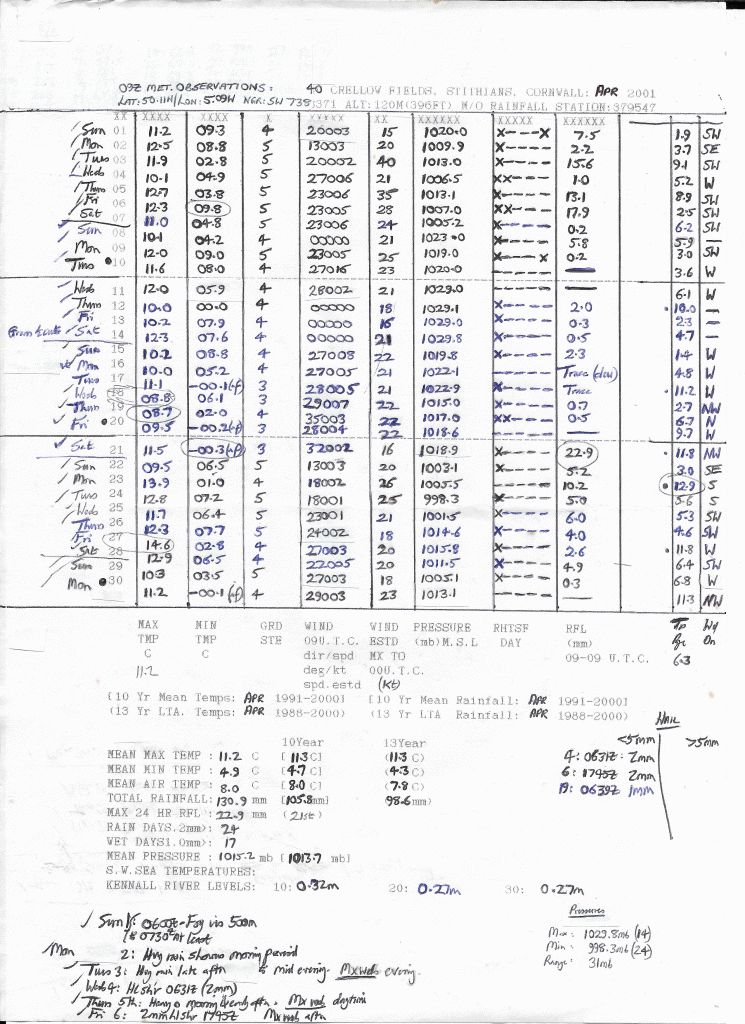 09Z MET. OBSERVATIONS: 40 CRELLOW FIELDS, STITHIANS, CORNWALL: APR 2001
LAT: 50.11N/LON: 5.09W NGR: SW 738371 ALT:120M(396FT) M/O RAINFALL STATION:379547
XX XXXX XXXX X XXXXX XX XXXXXX XXXXX XXXXXX
Sun 01 11.2 09.3 4 20003 15 1020.0 X---X 7.5 1.9 SW
Mon 02 12.5 08.8 5 13003 20 1009.9 X---- 2.2 3.7 SE
Tues 03 11.9 02.8 5 20002 40 1013.0 X---- 15.6 9.1 SW
Weds 04 10.1 04.9 5 27006 21 1006.5 XX--- 1.0 5.2 W
Thurs 05 12.7 03.8 5 23006 35 1013.1 X---- 13.1 8.9 SW
Fri 06 12.3 09.8 5 23005 28 1007.0 XX--- 17.9 2.5 SW
Sat 07 11.0 04.8 5 23006 24 1005.2 X---- 0.2 6.2 SW
Sun 08 10.1 04.2 4 00000 21 1023.0 X---- 5.8 5.9 —
Mon 09 12.0 09.0 5 23005 25 1019.0 X---X 0.2 3.0 SW
Tues 10 11.6 08.0 4 27015 23 1020.0 ----- — 3.6 W
Weds 11 12.0 05.9 4 28002 21 1029.0 ----- — 6.1 W
Thurs 12 10.0 00.0 4 00000 18 1029.1 X---- 2.0 10.0 —
Fri 13 10.2 07.9 4 00000 15 1029.0 X---- 0.3 2.3 —
Sat 14 12.3 07.6 4 00000 21 1029.8 X---- 0.5 4.7 —
Sun 15 10.2 08.8 4 27008 22 1019.8 X---- 2.3 1.4 W
Mon 16 10.0 05.2 4 27005 21 1022.1 ----- Trace (dew) 4.8 W
Tues 17 11.1 -00.1(af) 3 28005 21 1022.9 X---- Trace 11.2 W
Weds 18 08.8 06.1 3 29007 22 1015.0 X---- 0.7 2.7 NW
Thurs 19 08.7 02.0 4 35003 22 1017.0 XX--- 0.5 6.7 N
Fri 20 09.5 -00.2(af) 3 28004 22 1018.6 ----- 9.7 W
Sat 21 11.5 -00.3(af) 3 32002 16 1018.9 ----- 22.9 11.8 NW
Sun 22 09.5 06.5 5 13003 20 1003.1 X---- 5.2 3.0 SE
Mon 23 13.9 01.0 4 18002 26 1005.5 X---- 10.2 12.9 S
Tues 24 12.8 07.2 5 18001 25 998.3 X---- 5.0 5.6 S
Weds 25 11.7 06.4 5 23001 21 1001.5 X---- 6.0 5.3 SW
Thurs 26 12.3 07.7 5 24002 18 1014.6 X---- 4.0 4.6 SW
Fri 27 14.6 02.8 4 27003 20 1015.8 X---- 2.6 11.8 W
Sat 28 12.9 06.5 4 22005 20 1011.5 X---- 4.9 6.4 SW
Sun 29 10.3 03.5 5 27003 18 1005.1 X---- 0.3 6.8 W
Mon 30 11.2 -00.1(af) 4 29003 23 1013.1 ----- 11.3 NW
MAX MIN GRD WIND WIND PRESSURE RHTSF RFL
TMP TMP STE 09U.T.C. ESTD (mb)M.S.L DAY (mm)
C C dir/spd MX TO 09-09 U.T.C. 6.3
11.2 deg/kt 00U.T.C.
spd.estd (Kt)
[10 Yr Mean Temps: APR 1991-2000] [10 Yr Mean Rainfall: APR 1991-2000]
(13 Yr LTA. Temps: APR 1988-2000) (13 Yr LTA Rainfall: APR 1988-2000)
HAIL
<5mm >5mm
10Year 13Year
MEAN MAX TEMP : 11.2 C [11.3C] (11.3C) 4: 0631Z: 2mm
MEAN MIN TEMP : 4.9 C [4.7 C] (4.3 C) 6: 1745Z 2mm
MEAN AIR TEMP : 8.0 C [8.0 C] (7.8 C) 19: 0639Z 1mm
TOTAL RAINFALL: 130.9 mm [105.8mm] 98.6mm)
MAX 24 HR RFL : 22.9 mm (21st)
RAIN DAYS.2mm>: 24
WET DAYS1.0mm>: 17
MEAN PRESSURE : 1015.2 mb [1013.7 mb]
S.W.SEA TEMPERATURES:
KENNALL RIVER LEVELS: 10: 0.32m 20: 0.27m 30: 0.27m
Pressures
Max: 1029.8mb (14)
Min: 998.3mb (24)
Range: 31mb
Sun 1: 0600Z-Fog vis 500m
0730Z At least
Mon 2: Hvy rain showers morning period
Tues 3: Hvy rain late aftn to mid evening. Mx evening.
Weds 4: Hlshr 0631Z (2mm)
Thurs 5th: morning & early aftn. Mx daytime
Fri 6: 2mm hlshr 1745Z Mx aftn